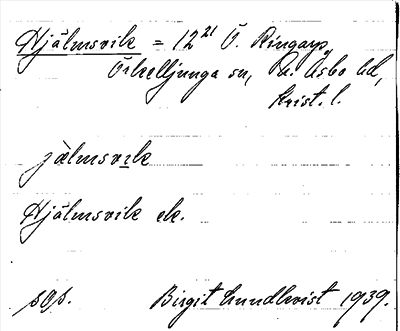 Hjälmsvik = 12²¹ Ö. Ringarp,
Örkelljunga sn, N. Åsbo hd,
Krist. l.
jälmsvik
Hjälmsvik ek.
sgs. Birgit Lundkvist 1939.